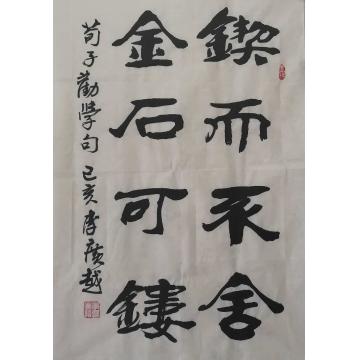 鍥而不舍
金石可鏤
荀子勸學句 己亥 李廣越